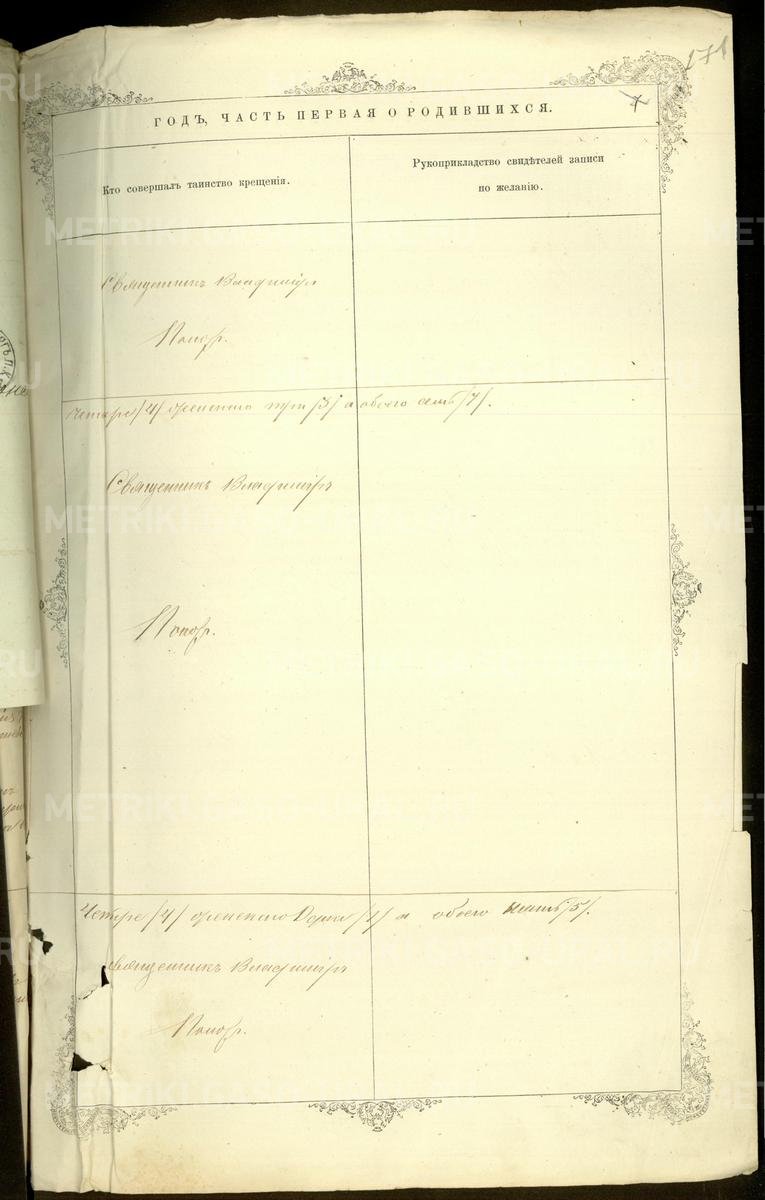 171
ГОДЪ, ЧАСТЬ ПЕРВАЯ О РОДИВШИХСЯ.
Кто совершалъ таинство крещенія.
Рукоприкладство свидѣтелей записи
по желанію.
Священникъ Владиміръ
Поповъ.
Четыре /4/ женскаго три /3/ а обоего семь /7/.
Священникъ Владиміръ
Поповъ.
Четыре /4/ женскаго /1/ и обоего пять /5/.
Священникъ Владиміръ
Поповъ.
METRIKI.GASO-URAL.RU